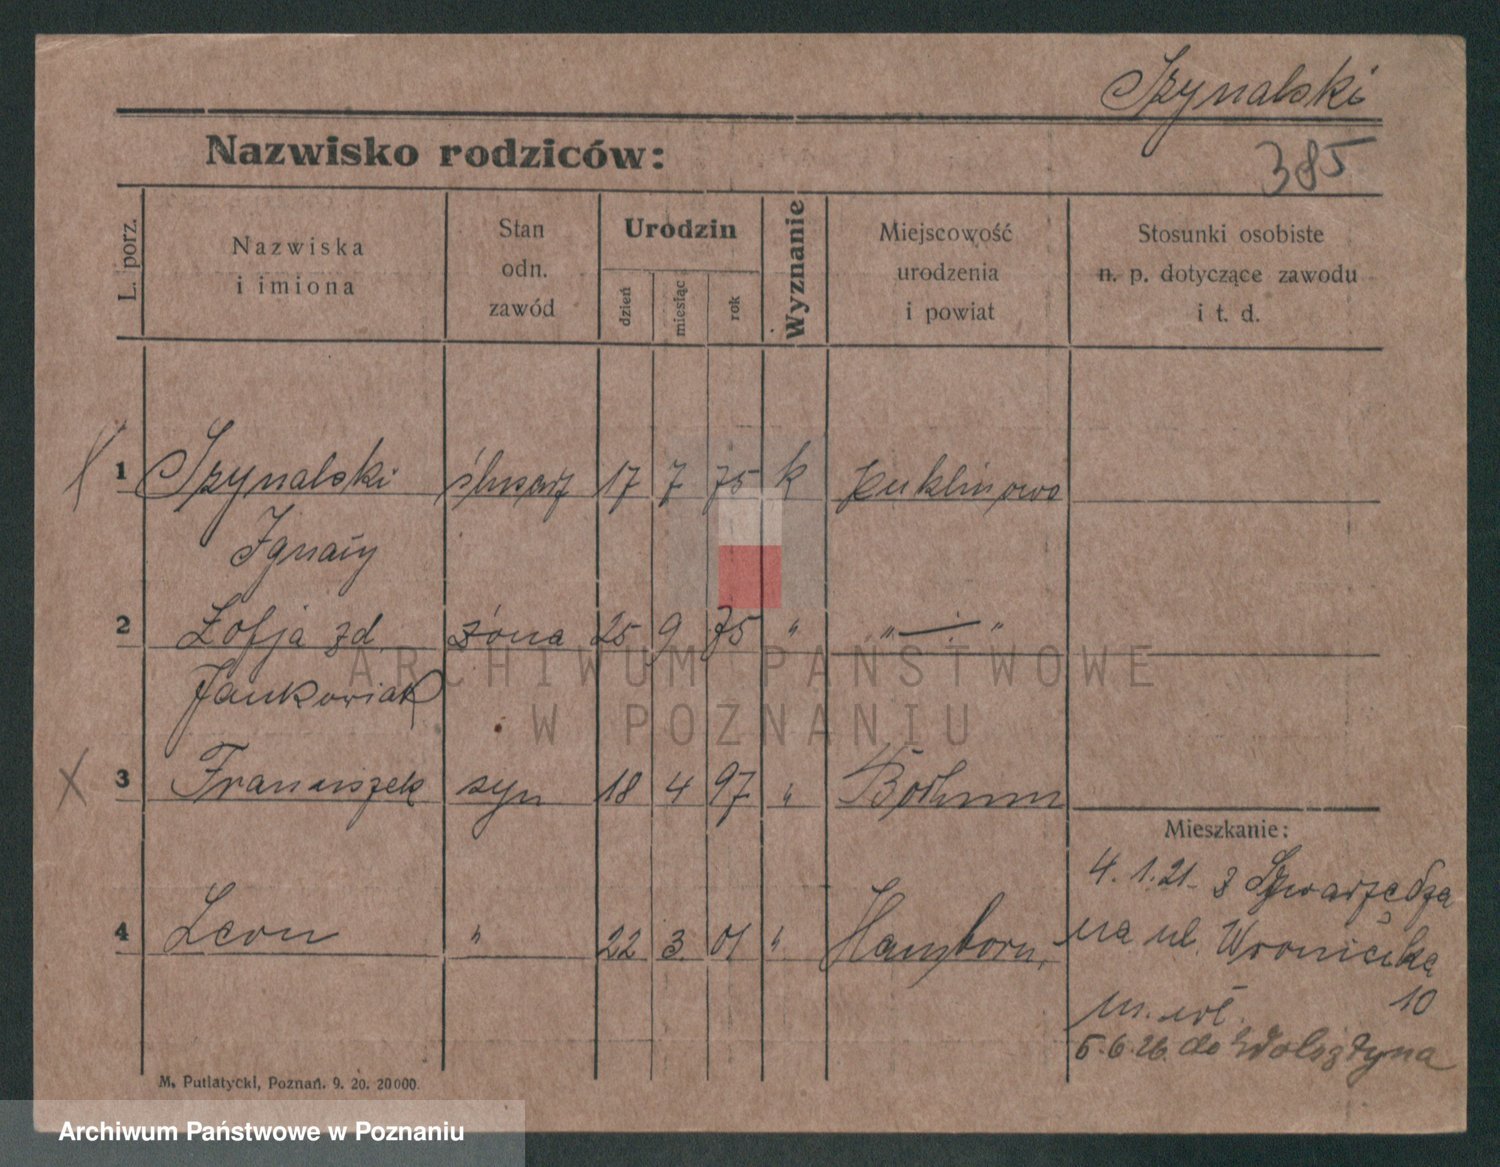 Szynalski
385
Nazwisko rodziców:
L. porz.
Nazwiska
i imiona
Stan
odn.
zawód
Urodzin
dzień
miesiąc
rok
Wyznanie
Miejscowość
urodzenia
i powiat
Stosunki osobiste
n. p. dotyczące zawodu
i t. d.
1 Szynalski ślusarz 17 7 75 k Kuklinowo
Ignacy
2 Zofja zd. żona 25 9 75 " " ÷ "
Jankowiak
3 Franciszek syn 18 4 97 " Bochum
Mieszkanie:
4 Leon " 22 3. 01 " Hamborn,
4. 1. 21. z Szwarzędza
na ul. Wroniecka
10
5.6.26. do Wolsztyna
M. Putiatycki, Poznań. 9. 20. 20000.
ARCHIWUM PAŃSTWOWE
W POZNANIU
Archiwum Państwowe w Poznaniu